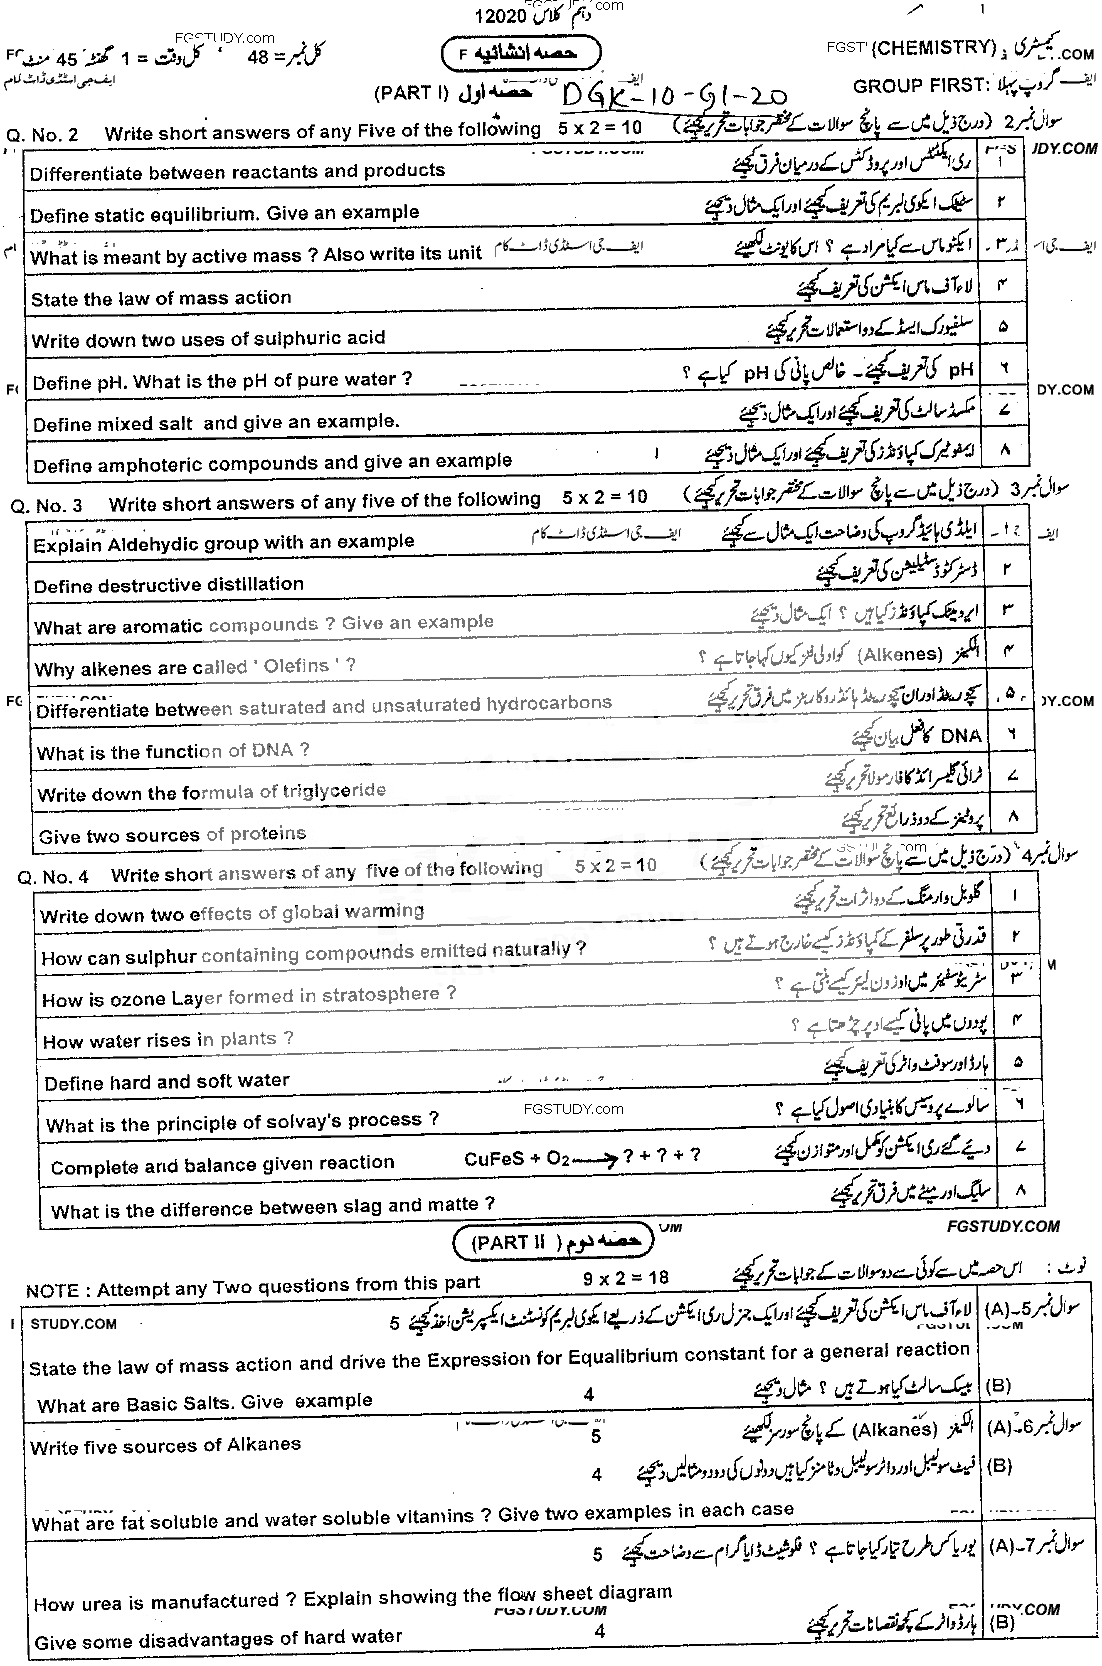 دہم کلاس 12020
FGSTUDY.com
کیمسٹری (CHEMISTRY) حصہ انشائیہ کل نمبر = 48 کل وقت = 1 گھنٹہ 45 منٹ
ایف جی اسٹڈی ڈاٹ کام
گروپ پہلا :GROUP FIRST حصہ اول (PART I) DGK-10-G1-20
Q. No. 2 Write short answers of any Five of the following 5 x 2 = 10 سوال نمبر 2 (درج ذیل میں سے پانچ سوالات کے مختصر جوابات تحریر کیجئے)
Differentiate between reactants and products ری ایکٹنٹس اور پروڈکٹس کے درمیان فرق کیجئے ۱
Define static equilibrium. Give an example سٹیٹک ایکوی لبریم کی تعریف کیجئے اور ایک مثال دیجئے ۲
What is meant by active mass ? Also write its unit ایف جی اسٹڈی ڈاٹ کام ایکٹو ماس سے کیا مراد ہے ؟ اس کا یونٹ لکھیئے ۳
State the law of mass action لاء آف ماس ایکشن کی تعریف کیجئے ۴
Write down two uses of sulphuric acid سلفیورک ایسڈ کے دو استعمالات تحریر کیجئے ۵
Define pH. What is the pH of pure water ? pH کی تعریف کیجئے ۔ خالص پانی کی pH کیا ہے ؟ ۶
Define mixed salt and give an example. مکسڈ سالٹ کی تعریف کیجئے اور ایک مثال دیجئے ۷
Define amphoteric compounds and give an example ایمفوٹیرک کمپاؤنڈز کی تعریف کیجئے اور ایک مثال دیجئے ۸
Q. No. 3 Write short answers of any five of the following 5 x 2 = 10 سوال نمبر 3 (درج ذیل میں سے پانچ سوالات کے مختصر جوابات تحریر کیجئے)
Explain Aldehydic group with an example ایف جی اسٹڈی ڈاٹ کام ایلڈی ہائیڈ گروپ کی وضاحت ایک مثال سے کیجئے ۱
Define destructive distillation ڈسٹرکٹو ڈسٹیلیشن کی تعریف کیجئے ۲
What are aromatic compounds ? Give an example ایرومیٹک کمپاؤنڈز کیا ہیں ؟ ایک مثال دیجئے ۳
Why alkenes are called ' Olefins ' ? الکینز (Alkenes) کو اولی فنز کیوں کہا جاتا ہے ؟ ۴
Differentiate between saturated and unsaturated hydrocarbons سیچوریٹڈ اور ان سیچوریٹڈ ہائڈروکاربنز میں فرق تحریر کیجئے ۵
What is the function of DNA ? DNA کا فعل بیان کیجئے ۶
Write down the formula of triglyceride ٹرائی گلیسرائڈ کا فارمولا تحریر کیجئے ۷
Give two sources of proteins پروٹینز کے دو ذرائع تحریر کیجئے ۸
Q. No. 4 Write short answers of any five of the following 5 x 2 = 10 سوال نمبر 4 (درج ذیل میں سے پانچ سوالات کے مختصر جوابات تحریر کیجئے)
Write down two effects of global warming گلوبل وارمنگ کے دو اثرات تحریر کیجئے ۱
How can sulphur containing compounds emitted naturally ? قدرتی طور پر سلفر کے کمپاؤنڈز کیسے خارج ہوتے ہیں ؟ ۲
How is ozone Layer formed in stratosphere ? سٹریٹوسفیئر میں اوزون لیئر کیسے بنتی ہے ؟ ۳
How water rises in plants ? پودوں میں پانی کیسے اوپر چڑھتا ہے ؟ ۴
Define hard and soft water ہارڈ اور سوفٹ واٹر کی تعریف کیجئے ۵
What is the principle of solvay's process ? FGSTUDY.com سالوے پروسیس کا بنیادی اصول کیا ہے ؟ ۶
Complete and balance given reaction CuFeS + O2 ⟶ ? + ? + ? دیے گئے ری ایکشن کو مکمل اور متوازن کیجئے ۷
What is the difference between slag and matte ? سلیگ اور میٹے میں فرق تحریر کیجئے ۸
حصہ دوم (PART II) FGSTUDY.COM
NOTE : Attempt any Two questions from this part 9 x 2 = 18 نوٹ : اس حصہ میں سے کوئی سے دو سوالات کے جوابات تحریر کیجئے
STUDY.COM سوال نمبر 5۔(A) لاء آف ماس ایکشن کی تعریف کیجئے اور ایک جنرل ری ایکشن کے ذریعے ایکوی لبریم کونسٹنٹ ایکسپریشن اخذ کیجئے 5
State the law of mass action and drive the Expression for Equalibrium constant for a general reaction
What are Basic Salts. Give example 4 بیسک سالٹ کیا ہوتے ہیں ؟ مثال دیجئے (B)
Write five sources of Alkanes 5 الکینز (Alkanes) کے پانچ سورسز لکھیئے سوال نمبر 6۔(A)
4 فیٹ سولیبل اور واٹر سولیبل وٹامنز کیا ہیں دونوں کی دو دو مثالیں دیجئے (B)
What are fat soluble and water soluble vitamins ? Give two examples in each case
5 یوریا کس طرح تیار کیا جاتا ہے ؟ فلو شیٹ ڈایا گرام سے وضاحت کیجئے سوال نمبر 7۔(A)
How urea is manufactured ? Explain showing the flow sheet diagram
FGSTUDY.COM
Give some disadvantages of hard water 4 ہارڈ واٹر کے کچھ نقصانات تحریر کیجئے (B)